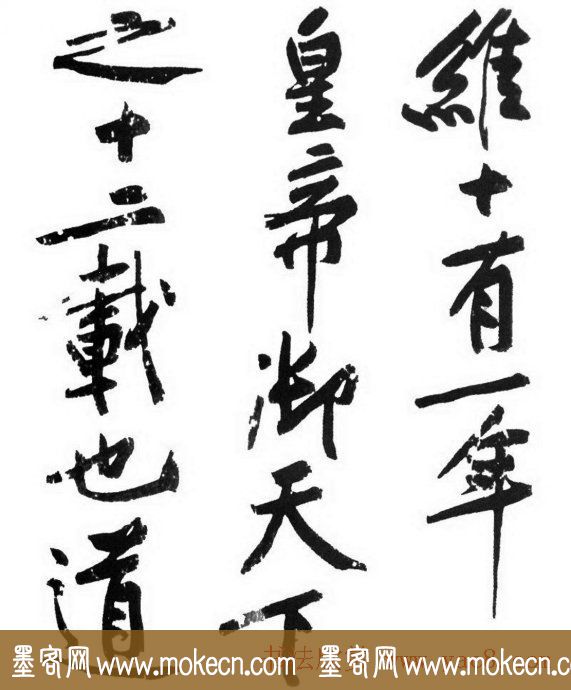 維十有一年
皇帝御天下
之十二載也道
墨客网 www.mokecn.com 墨客网 www.mokecn.com